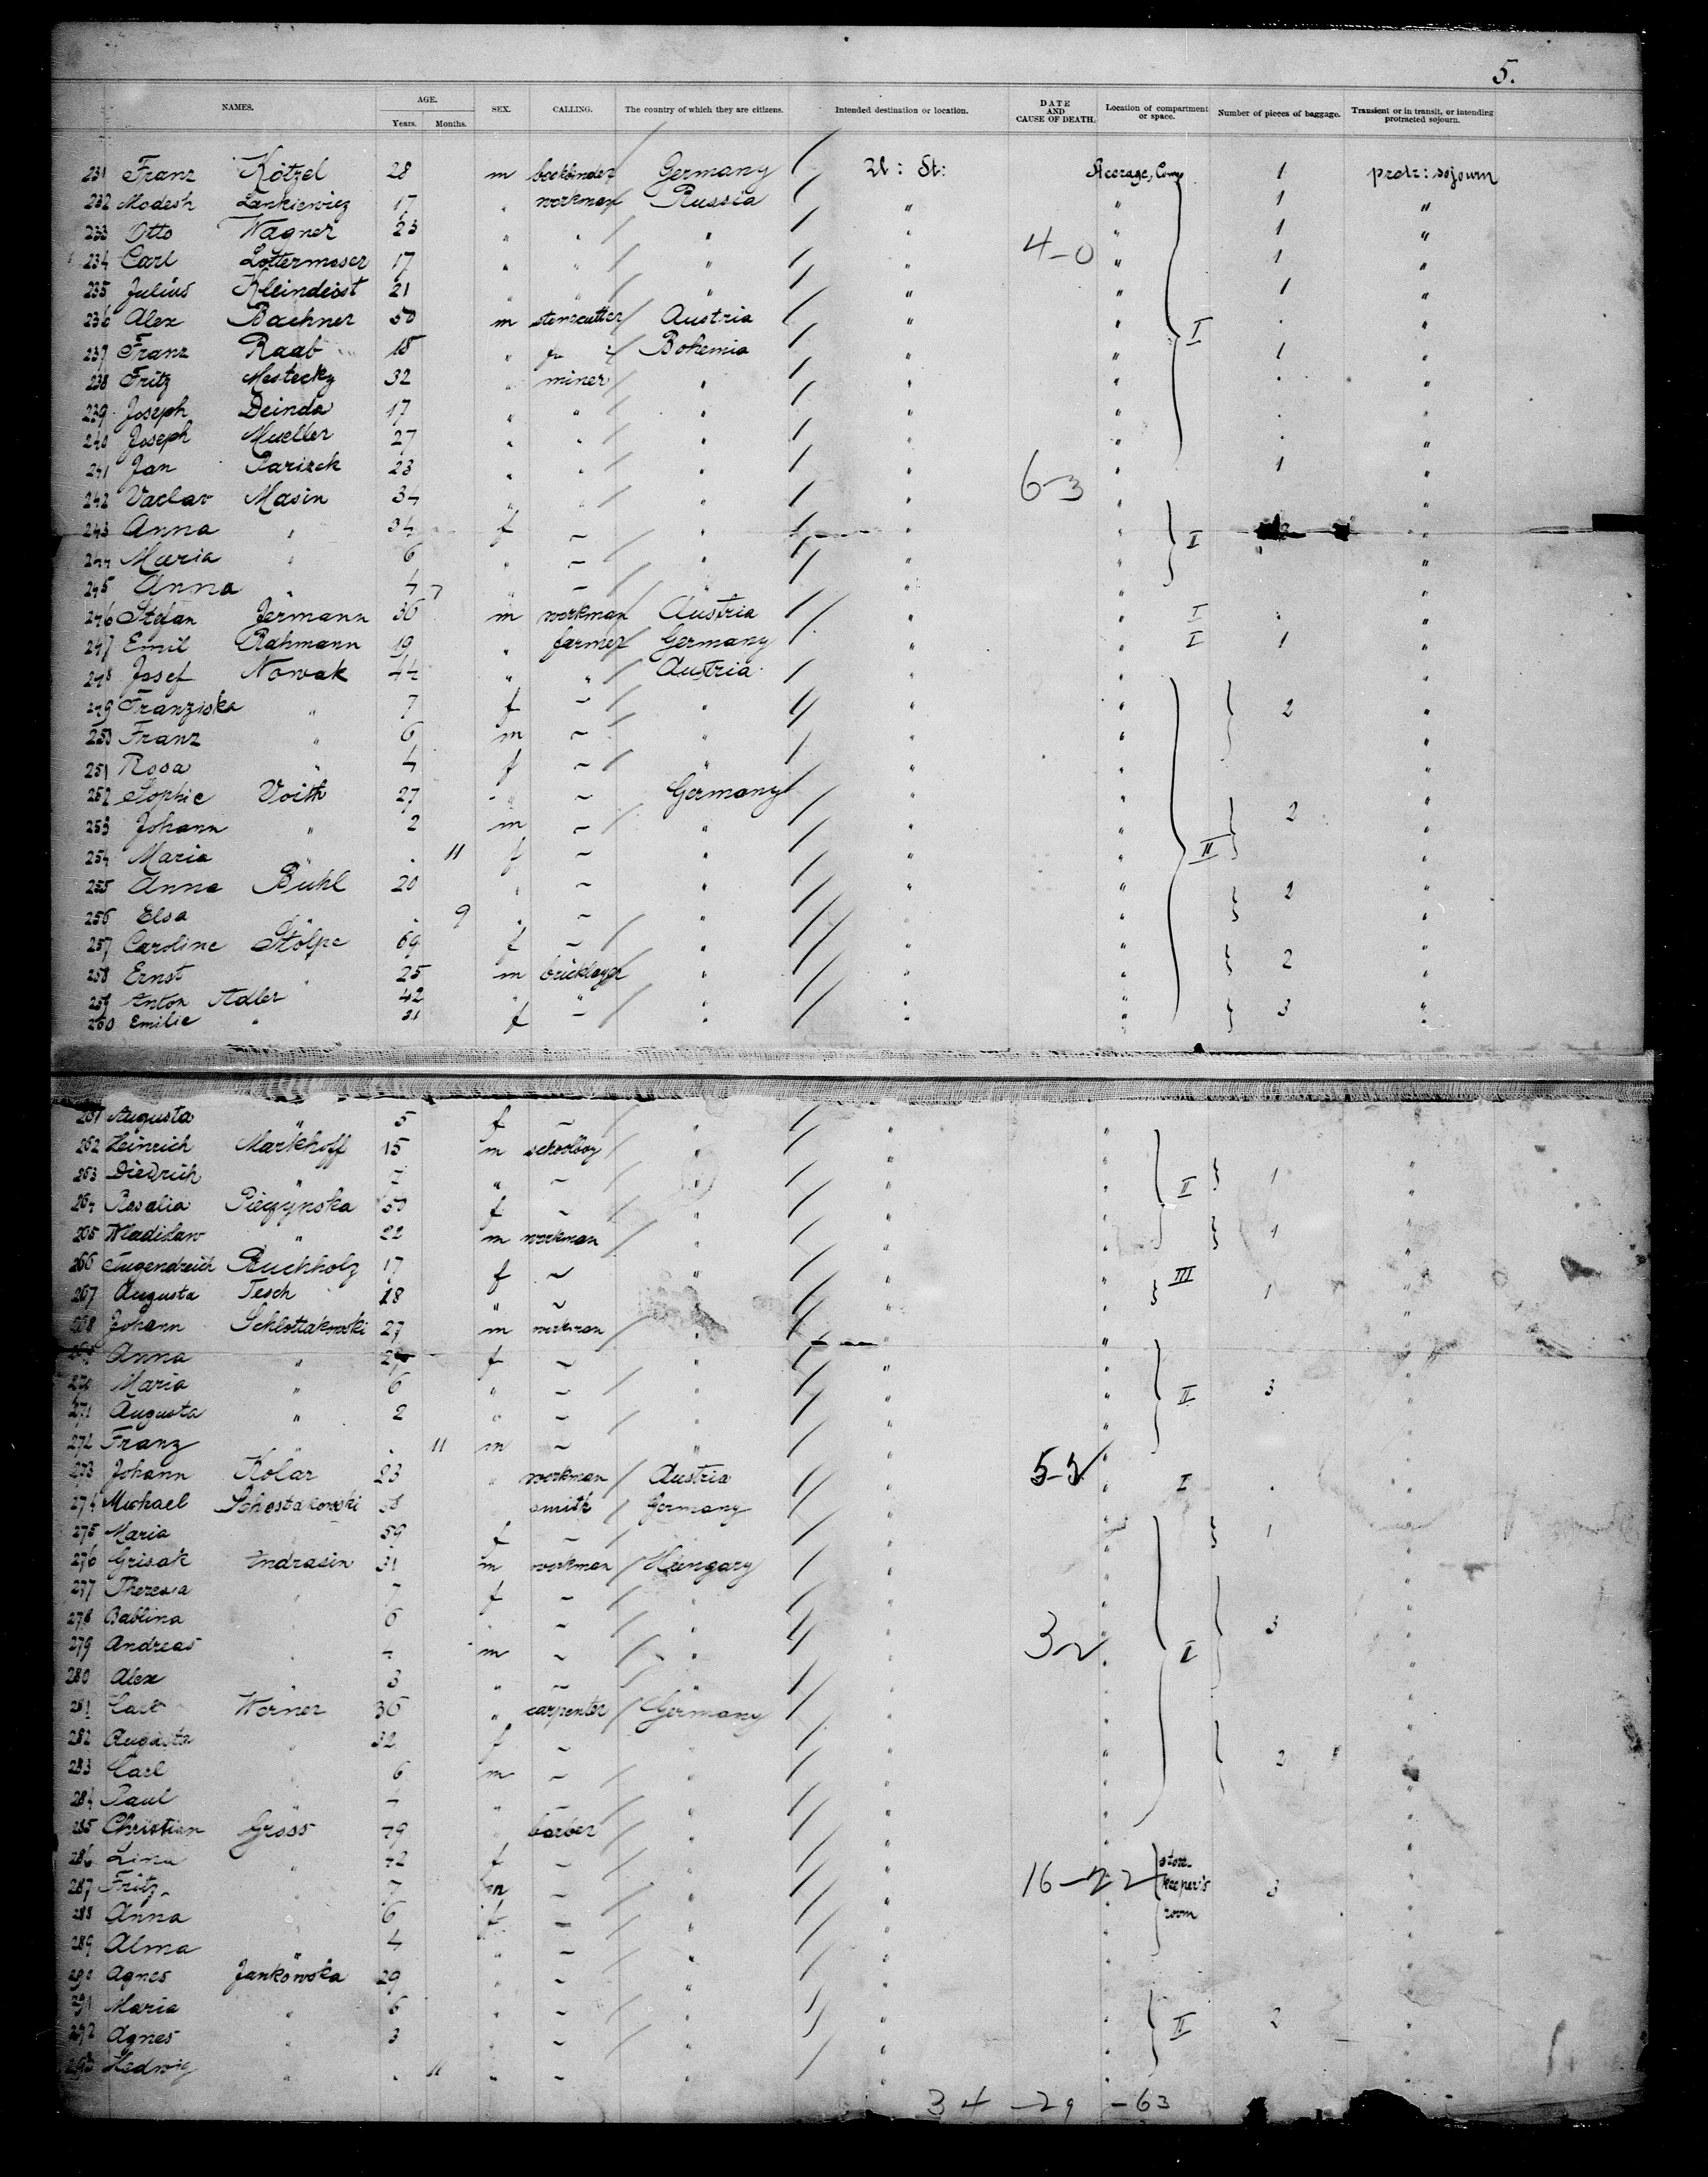 5.
NAMES. AGE. SEX. CALLING. The country of which they are citizens. Intended destination or location. DATE AND CAUSE OF DEATH. Location of compartment or space. Number of pieces of baggage. Transient or in transit, or intending protracted sojourn.
Years. Months.
231 Franz Kötzel 28 m bookbinder Germany St: Steerage, 1 protr: sojourn
232 Modesh Lankiewicz 17 " workman Russia " " 1 "
233 Otto Wagner 23 " " " " " 1 "
234 Carl Lottermoser 17 " " " " 4-0 " 1 "
235 Julius Kleindiost 21 " " " " " 1 "
236 Alex Bachner 50 m stonecutter Austria " " I "
237 Franz Raab 18 " " Bohemia " " 1 "
238 Fritz Mestecky 32 " miner " " " "
239 Joseph Deinda 17 " " " " " "
240 Joseph Mueller 27 " " " " " "
241 Jan Parizek 23 " " " " 6-3 " 1 "
242 Vaclav Masin 34 " " " " " "
243 Anna " 34 f – " " " I "
244 Maria " 6 " – " " " "
245 Anna " 4 " – " " " "
246 Stefan Jermann 36 m workman Austria " " I "
247 Emil Rahmann 19 " farmer Germany " " I 1 "
248 Josef Nowak 44 " " Austria " " "
249 Franziska " 7 f – " " " 2 "
250 Franz " 6 m – " " " "
251 Rosa " 4 f – " " " "
252 Sophie Voith 27 " – Germany " " "
253 Johann " 2 m – " " " 2 "
254 Maria " . 11 f – " " " II "
255 Anna Bühl 20 " – " " " 2 "
256 Elsa " . 9 " – " " " "
257 Caroline Stölpe 69 f – " " " "
258 Ernst " 25 m bricklayer " " " 2 "
259 Anton Adler 42 " " " " " 3 "
260 Emilie " 31 f – " " " "
261 Augusta " 5 f – " " " "
262 Heinrich Markhoff 15 m schoolboy " " " "
263 Diedrich " 7 " – " " " II 1 "
264 Rosalia Pieczynska 50 f – " " " "
265 Wladislaw " 22 m workman " " " 1 "
266 Tugendreich Buchholz 17 f – " " " III "
267 Augusta Tesch 18 " – " " " 1 "
268 Johann Schlostakowski 27 m workman " " " "
269 Anna " f – " " " "
270 Maria " 6 " – " " " II 3 "
271 Augusta " 2 " – " " " "
272 Franz " . 11 m – " " " "
273 Johann Kolar 23 " workman Austria " " I "
274 Michael Schostakowski " smith Germany " " "
275 Maria 59 f – " " " 1 "
276 Grisak Andrasin 31 m workman Hungary " " "
277 Theresa " 7 f – " " " "
278 Bablina 6 " – " " " 3 "
279 Andreas " m – " " " "
280 Alex " 3 " – " " " "
281 Carl Werner 36 " carpenter Germany " " "
282 Augusta " 32 f – " " " "
283 Carl " 6 m – " " " 2 "
284 Paul " " – " " " "
285 Christian Gross " barber " " " "
286 Lina " f – " " " store-
287 Fritz " 7 m – " " 16-22 keeper's 3 "
288 Anna " 6 f – " " " room "
289 Alma " 4 " – " " " "
290 Agnes Jankowska 29 " – " " " "
291 Maria " 6 " – " " " "
292 Agnes " 3 " – " " " II 2 "
293 Hedwig " . 11 " – " " " "
34 -29 -63